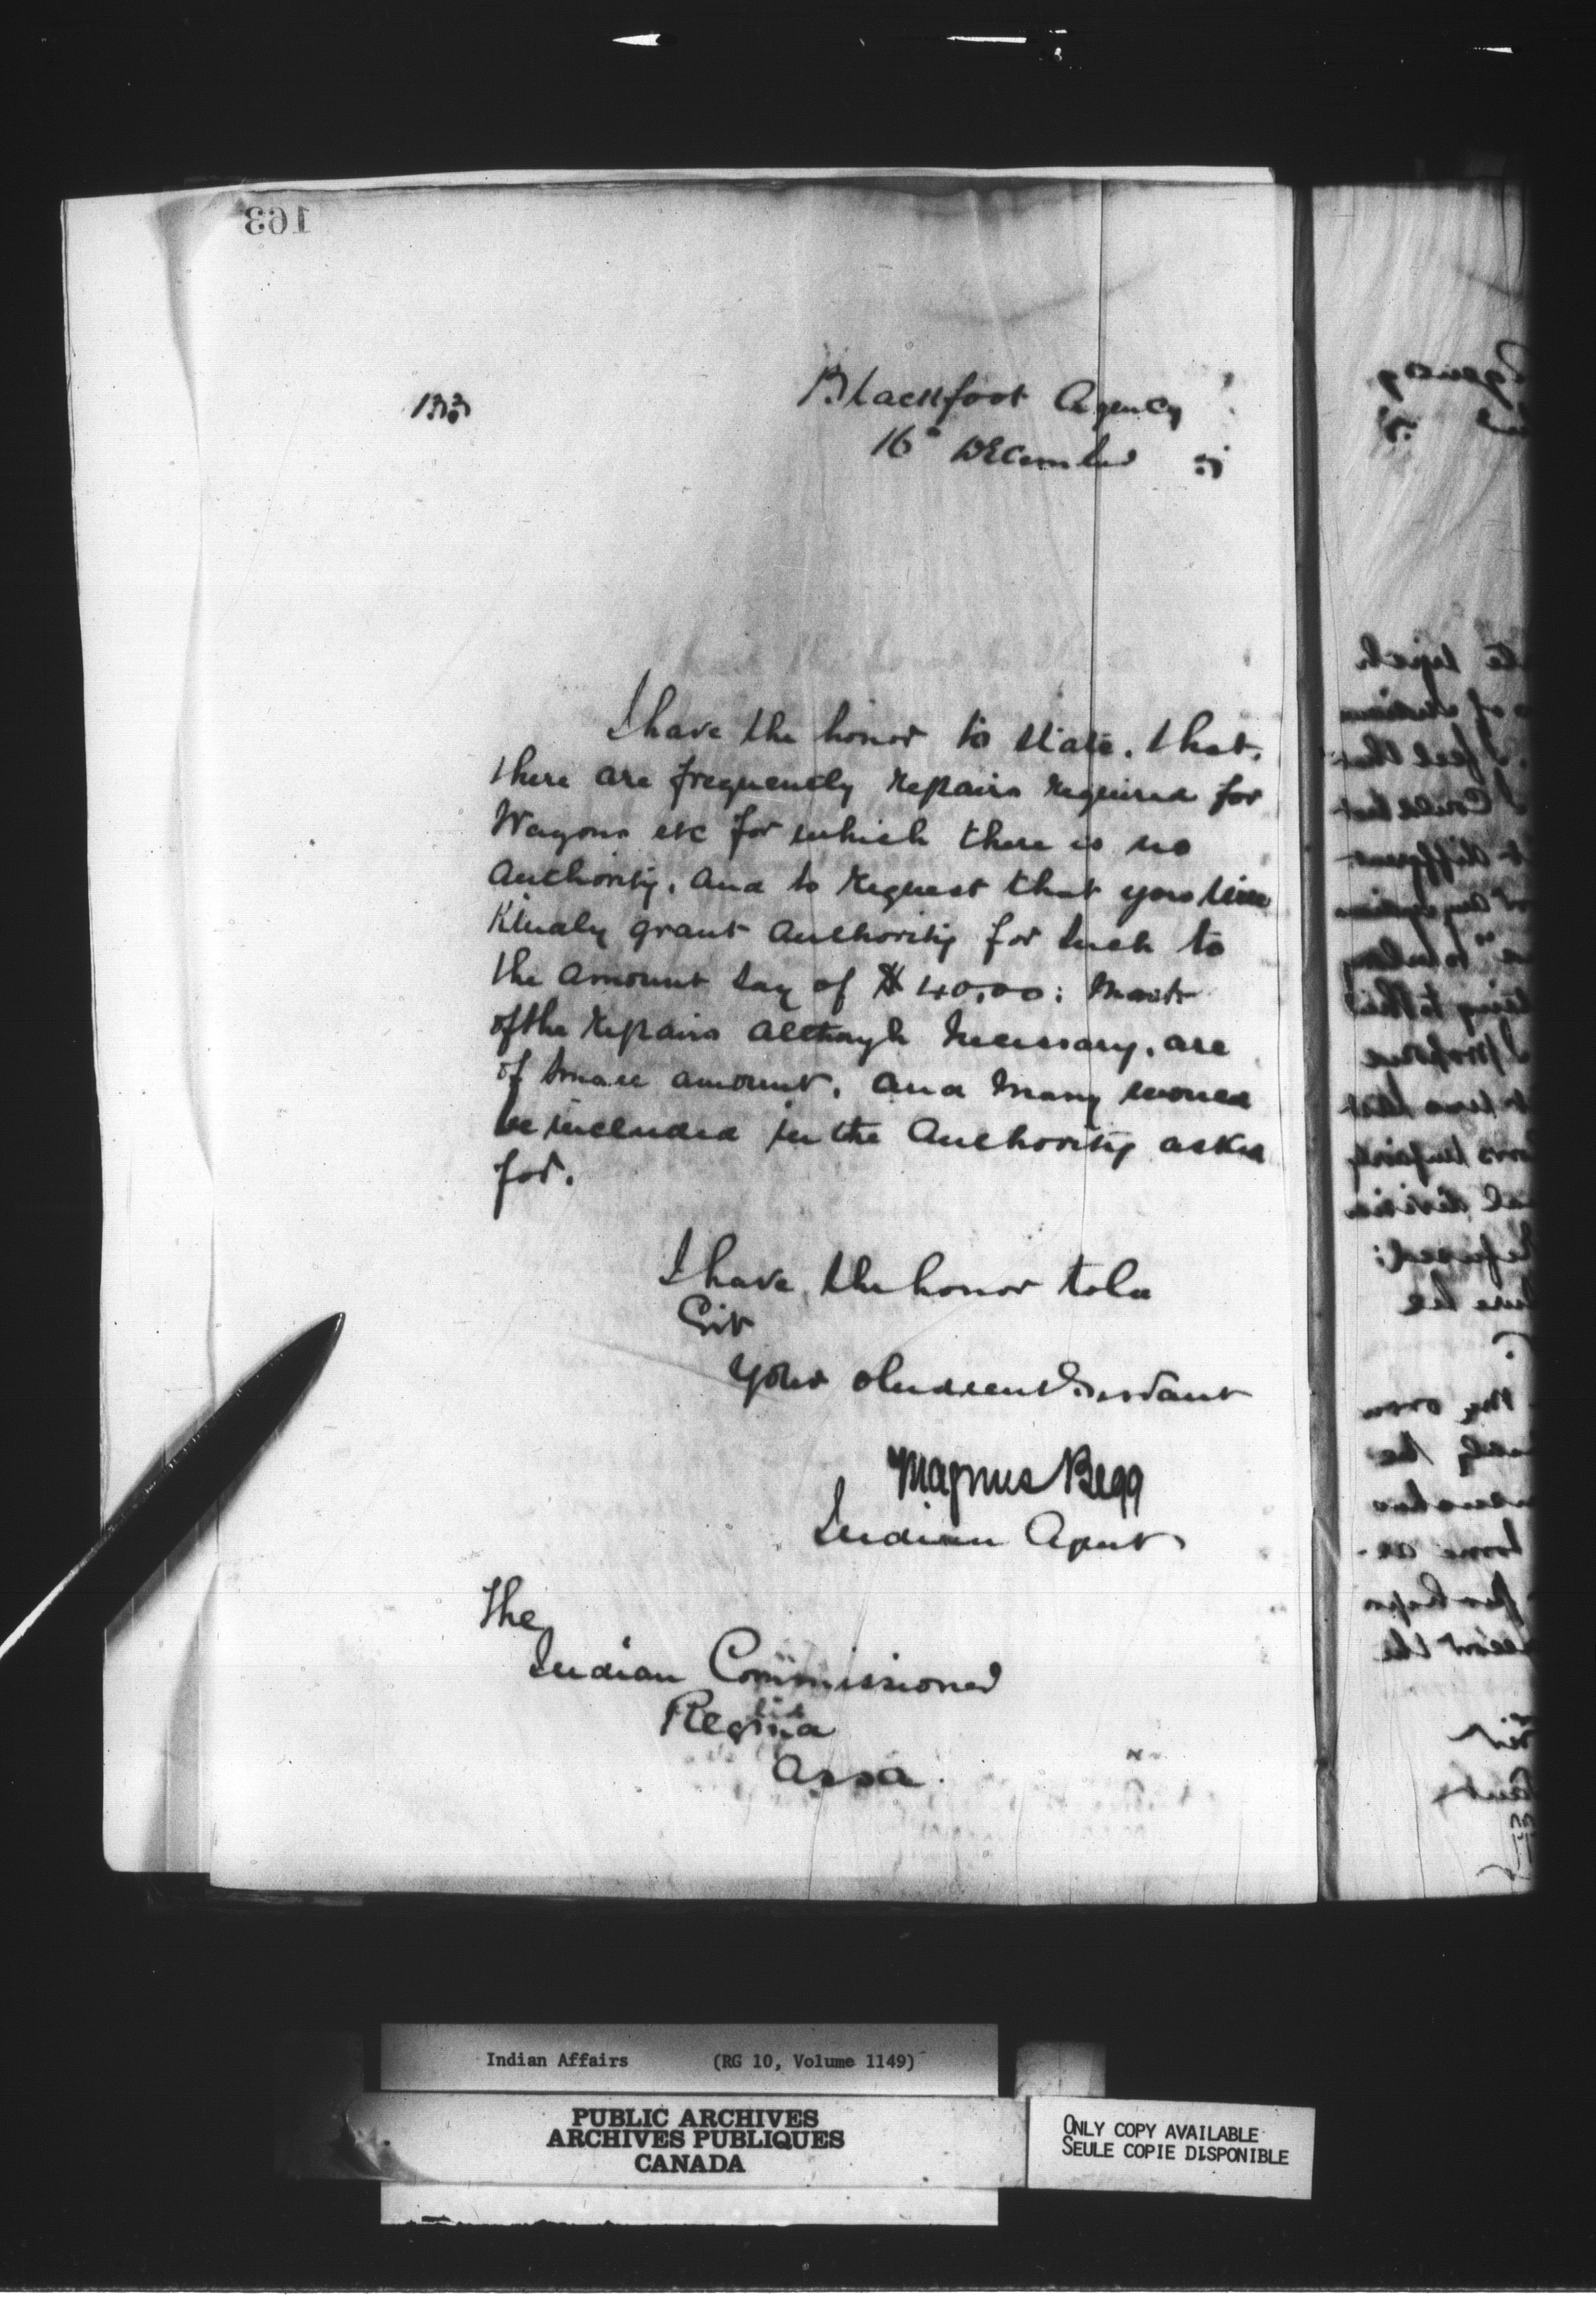 163
133
Blackfoot Agency
16 December
I have the honor to state, that,
there are frequently Repairs Required for
Wagons etc for which there is no
Authority, and to Request that you will
Kindly grant Authority for such to
the amount say of $40.00: Most
of the Repairs although necessary, are
of small amount, and many would
be included in the Authority asked
for.
I have the honor to be
Sir
Your obedient Servant
Magnus Begg
Indian Agent
The
Indian Commissioner
Regina
Assa.
Indian Affairs (RG 10, Volume 1149)
PUBLIC ARCHIVES
ARCHIVES PUBLIQUES
CANADA
ONLY COPY AVAILABLE
SEULE COPIE DISPONIBLE